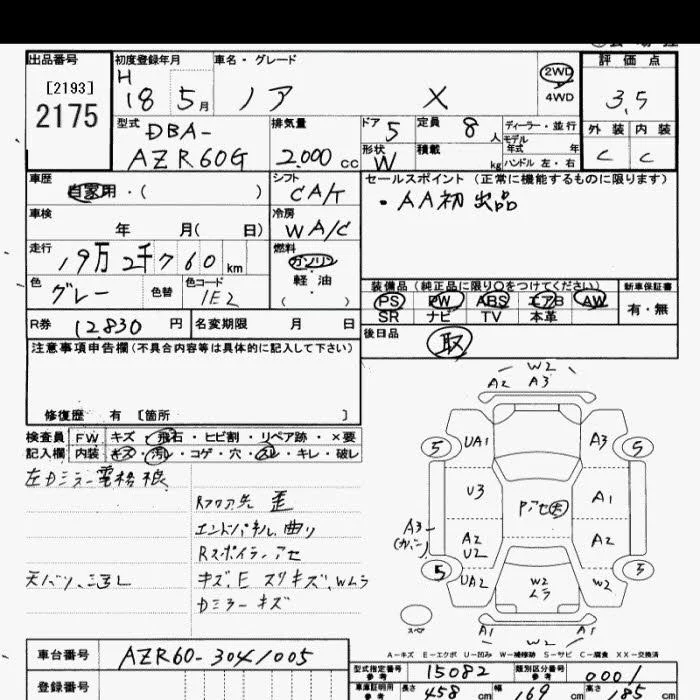 出品番号
[2193]
2175
初度登録年月
H 18 5月
車名・グレード
ノア X
2WD
4WD
評価点
3.5
外装 内装
C C
型式
DBA-
AZR60G
排気量
2.000 cc
ドア 5
定員 8 人
形状 W
積載 kg
ディーラー・並行
モデル年式 年
ハンドル 左・右
車歴
自家用・( )
シフト
CA/T
セールスポイント (正常に機能するものに限ります)
・AA初出品
車検
年 月( 日)
冷房
WA/C
走行
19万2千760 km
燃料
ガソリン
軽油
( )
色
グレー
色替
色コード
1E2
装備品 (純正品に限り○をつけてください)
PS PW ABS エアB AW
SR ナビ TV 本革
新車保証書
有・無
R券 12.830 円
名変期限 月 日
後日品
取
注意事項申告欄 (不具合内容等は具体的に記入して下さい)
修復歴 有 [箇所 ]
検査員 FW キズ・飛石・ヒビ割・リペア跡・×要
記入欄 内装 キズ・汚レ・コゲ・穴・スレ・キレ・破レ
左Dミラー電格
Rフロア先 歪
エンドパネル曲り
Rスポイラーアセ
キズ、E スリキズ、Wムラ
Dミラーキズ
W2
A2 A3
5 UA1 A3 5
U3 A1
A3
A2 A2
U2
5 UA2 W2 3
W2
ムラ
スペア
A1 A1
W2
A-キズ E-エクボ U-凹み W-補修跡 S-サビ C-腐食 XX-交換済
車台番号 AZR60-3041005
登録番号
型式指定番号 参考 15082
類別区分番号 参考 0001
車庫証明用 参考 長さ 458 cm 幅 169 cm 高さ 185 cm